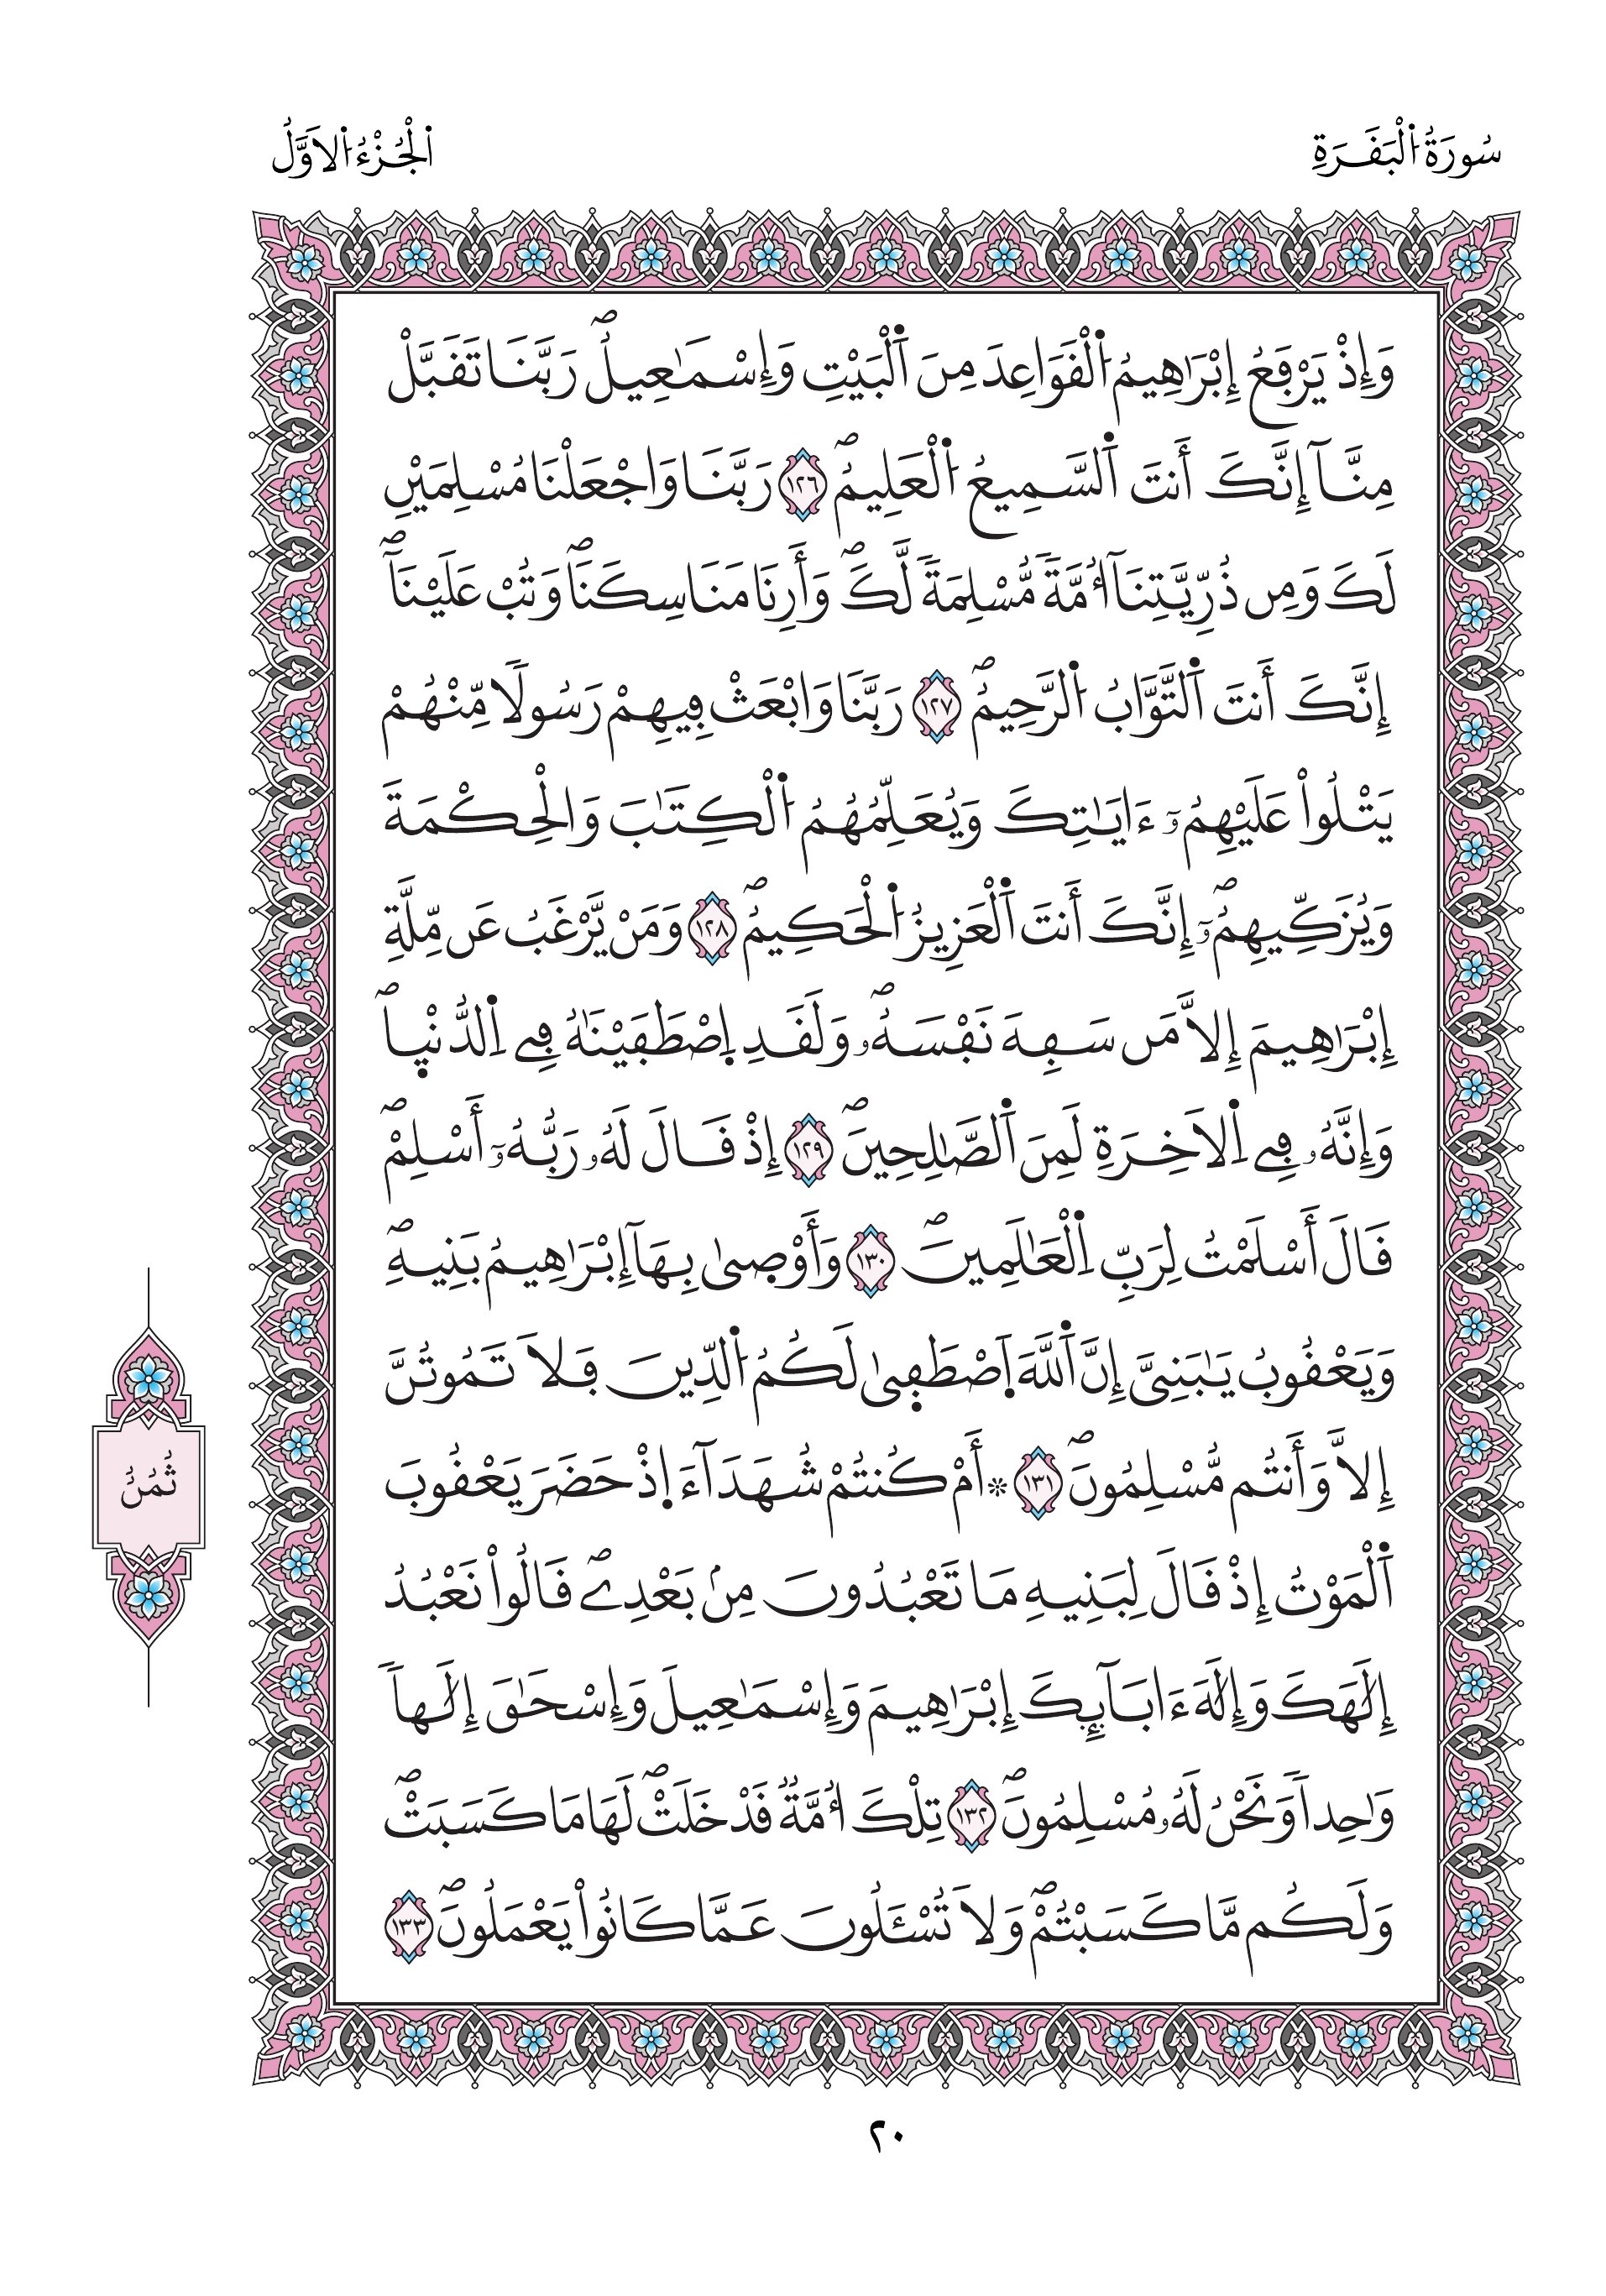 سُورَةُ اُ۬لْبَقَرَةِ
اَ۬لْجُزْءُ اُ۬لَاوَّلُ
وَإِذْ يَرْفَعُ إِبْرَٰهِيمُ اُ۬لْقَوَاعِدَ مِنَ اَ۬لْبَيْتِ وَإِسْمَٰعِيلُۖ رَبَّنَا تَقَبَّلْ
مِنَّآ إِنَّكَ أَنتَ اَ۬لسَّمِيعُ اُ۬لْعَلِيمُۖ ١٢٦ رَبَّنَا وَاجْعَلْنَا مُسْلِمَيْنِ
لَكَ وَمِن ذُرِّيَّتِنَآ أُمَّةٗ مُّسْلِمَةٗ لَّكَۖ وَأَرِنَا مَنَاسِكَنَاۖ وَتُبْ عَلَيْنَآۖ
إِنَّكَ أَنتَ اَ۬لتَّوَّابُ اُ۬لرَّحِيمُۖ ١٢٧ رَبَّنَا وَابْعَثْ فِيهِمْ رَسُولاٗ مِّنْهُمْ
يَتْلُواْ عَلَيْهِمُۥٓ ءَايَٰتِكَ وَيُعَلِّمُهُمُ اُ۬لْكِتَٰبَ وَالْحِكْمَةَ
وَيُزَكِّيهِمُۥٓۖ إِنَّكَ أَنتَ اَ۬لْعَزِيزُ اُ۬لْحَكِيمُۖ ١٢٨ وَمَنْ يَّرْغَبُ عَن مِّلَّةِ
إِبْرَٰهِيمَ إِلاَّ مَن سَفِهَ نَفْسَهُۥۖ وَلَقَدِ اِ۪صْطَفَيْنَٰهُ فِے اِ۬لدُّنْي۪اۖ
وَإِنَّهُۥ فِے اِ۬لَاخِرَةِ لَمِنَ اَ۬لصَّٰلِحِينَۖ ١٢٩ إِذْ قَالَ لَهُۥ رَبُّهُۥٓ أَسْلِمْۖ
قَالَ أَسْلَمْتُ لِرَبِّ اِ۬لْعَٰلَمِينَۖ ١٣٠ وَأَوْص۪يٰ بِهَآ إِبْرَٰهِيمُ بَنِيهِۖ
وَيَعْقُوبُ يَٰبَنِيَّ إِنَّ اَ۬للَّهَ اَ۪صْطَف۪يٰ لَكُمُ اُ۬لدِّينَ فَلاَ تَمُوتُنَّ
إِلاَّ وَأَنتُم مُّسْلِمُونَۖ ١٣١ ۞ أَمْ كُنتُمْ شُهَدَآءَ اِ۪ذْ حَضَرَ يَعْقُوبَ
اَ۬لْمَوْتُ إِذْ قَالَ لِبَنِيهِ مَا تَعْبُدُونَ مِنۢ بَعْدِےۖ قَالُواْ نَعْبُدُ
إِلَٰهَكَ وَإِلَٰهَ ءَابَآئِكَ إِبْرَٰهِيمَ وَإِسْمَٰعِيلَ وَإِسْحَٰقَ إِلَٰهاٗ
وَٰحِداٗ وَنَحْنُ لَهُۥ مُسْلِمُونَۖ ١٣٢ تِلْكَ أُمَّةٞ قَدْ خَلَتْۖ لَهَا مَا كَسَبَتْۖ
وَلَكُم مَّا كَسَبْتُمْۖ وَلاَ تُسْـَٔلُونَ عَمَّا كَانُواْ يَعْمَلُونَۖ ١٣٣
ثُمُنُ
٢٠